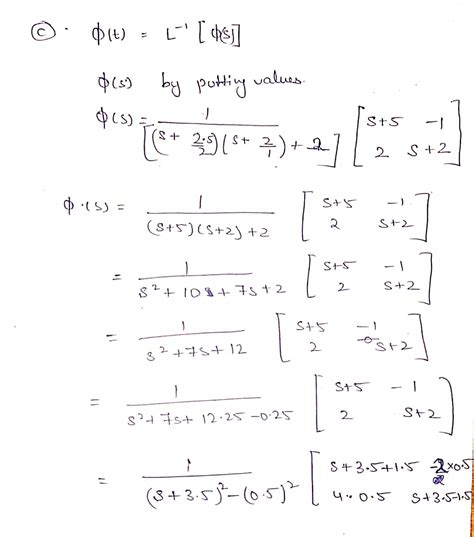 (c). ϕ(t) = L⁻¹ [ϕ(s)]
ϕ(s) by putting values.
ϕ(s) = 1 / [(s + 2.5/2)(s + 2/1) + 2] [s+5 -1; 2 s+2]
ϕ.(s) = 1 / (s+5)(s+2)+2 [s+5 -1; 2 s+2]
= 1 / s²+10s+7s+2 [s+5 -1; 2 s+2]
= 1 / s²+7s+12 [s+5 -1; 2 s+2]
= 1 / s²+7s+12.25-0.25 [s+5 -1; 2 s+2]
= 1 / (s+3.5)²-(0.5)² [s+3.5+1.5 -2×0.5; 4.0.5 s+3.5-1.5]